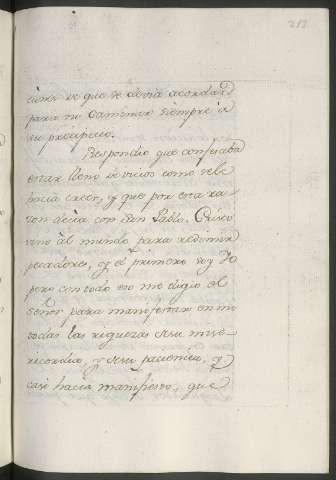 213
ciones de que se devia acordar
para no caminar siempre à
su precipicio.
Respondio que confesaba
estar lleno de vicios como se le
hacia creer, y que por esta ra-
zon decia con San Pablo. Cristo
vino al mundo para redimir
pecadores, y el primero soy Yo
pero con todo eso me eligio el
Señor para manifestar en mi
todas las riquezas de su mise-
ricordia, y de su paciencia, y
casi hacia manifiesto, que